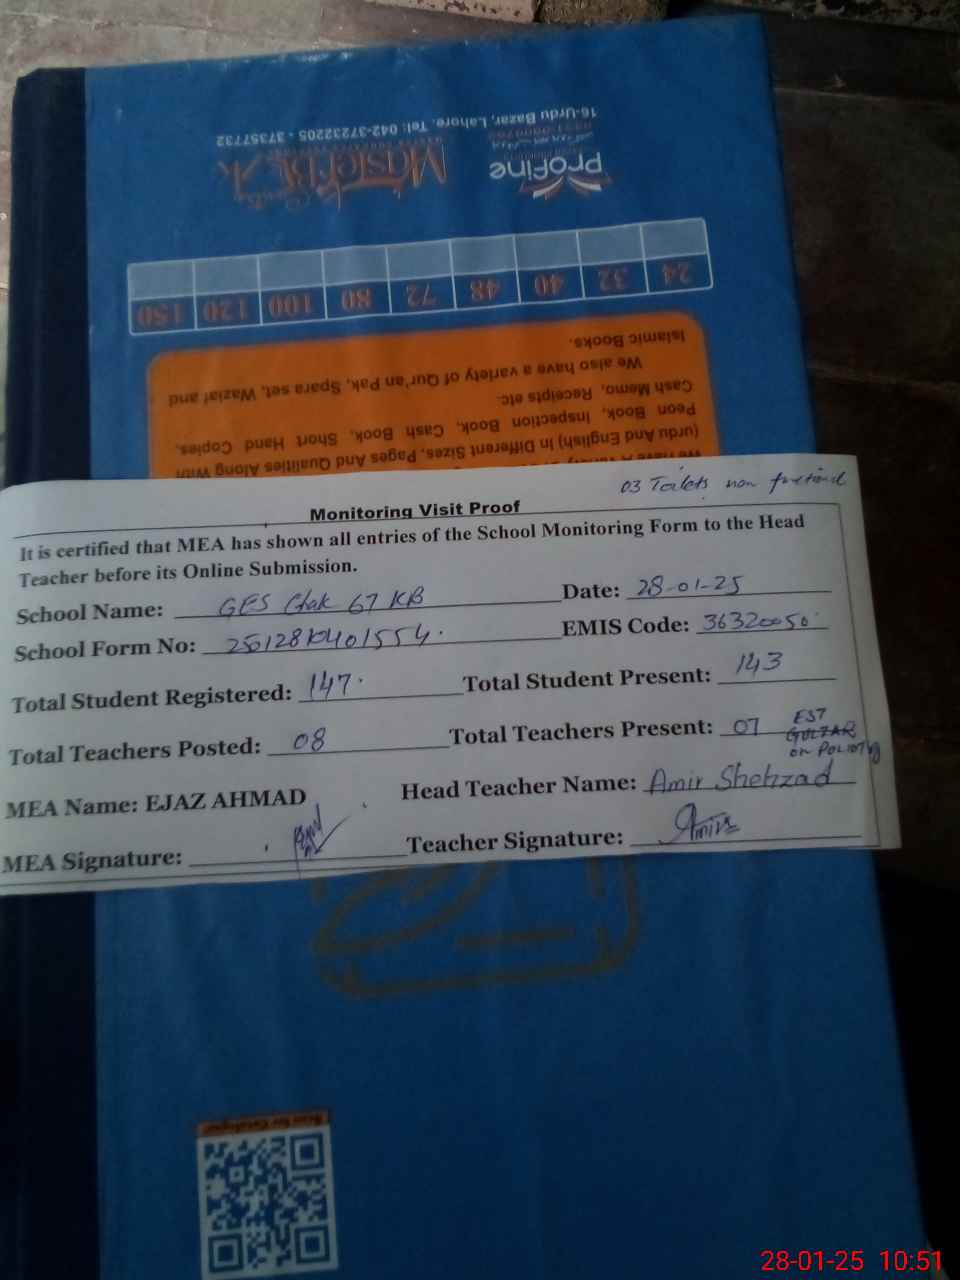 16-Urdu Bazar, Lahore. Tel: 042-37232205 - 37357732
ProFine
24 32 40 48 72 80 100 120 150
We have A Variety
(urdu And English) In Different Sizes, Pages And Qualities Along With
Peon Book, Inspection Book, Cash Book, Short Hand Copies,
Cash Memo, Receipts etc.
We also have a variety of Qur'an Pak, Spara set, Waziaf and
Islamic Books.
03 Toilets non
Monitoring Visit Proof
It is certified that MEA has shown all entries of the School Monitoring Form to the Head
Teacher before its Online Submission.
School Name: GES Chak 67 KB Date: 28-01-25
School Form No: EMIS Code: 36320050
Total Student Registered: 147 Total Student Present: 143
Total Teachers Posted: 08 Total Teachers Present: 07 EST
GULZAR
on POLIO
MEA Name: EJAZ AHMAD Head Teacher Name: Amir Shehzad
MEA Signature: Teacher Signature: Amir
Scan for Catalogue
28-01-25 10:51